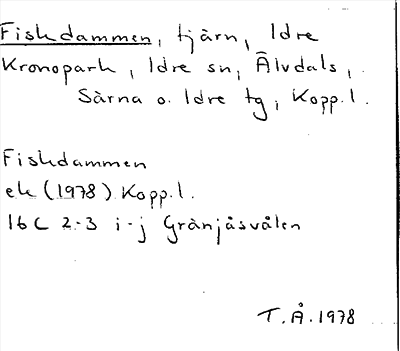 Fiskdammen, tjärn, Idre
Kronopark, Idre sn, Älvdals,
Särna o. Idre tg, Kopp.l.
Fiskdammen
ek (1978) Kopp.l.
16C 2-3 i-j Grånjåsvålen
T.Å.1978